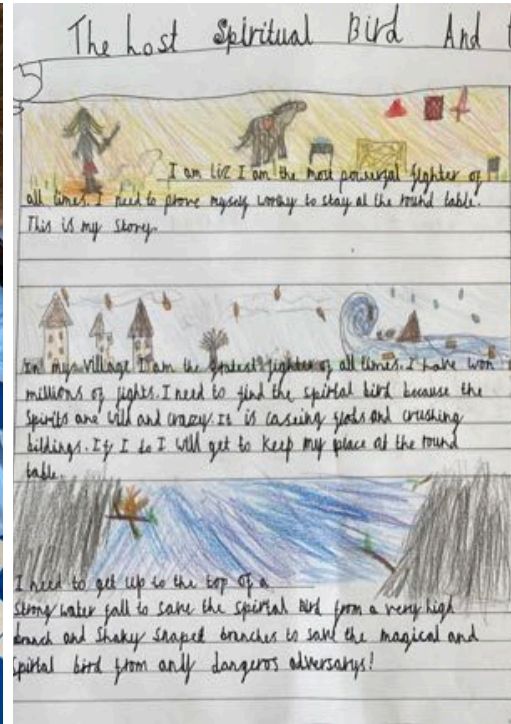 The Lost Spiritual Bird And
I am Liz I am the most powerful fighter of
all times. I need to prove myself worthy to stay at the round table.
This is my story.
In my village I am the greatest fighter of all times. I have won
millions of fights. I need to find the spirtal bird because the
Spirits are wild and crazy. It is caseing flods and crushing
bildings. If I do I will get to keep my place at the round
table.
I need to get up to the top of a
strong water fall to save the spirtal Bird from a very high
branch and shaky snaped branches to save the magical and
spirtal bird from any dangeros adversarys!